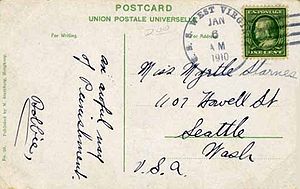 POSTCARD
UNION POSTALE UNIVERSELLE
For Writing.
For Address.
U.S.S. WEST VIRG
JAN
6
A M
1910
an awful way
of Punishment
Bobbie,
Miss Myrtle Starnes
1107 Howell St
Seattle
Wash
U.S.A.
ONE CENT
No. 58. Published by M. Sternberg, Hongkong.